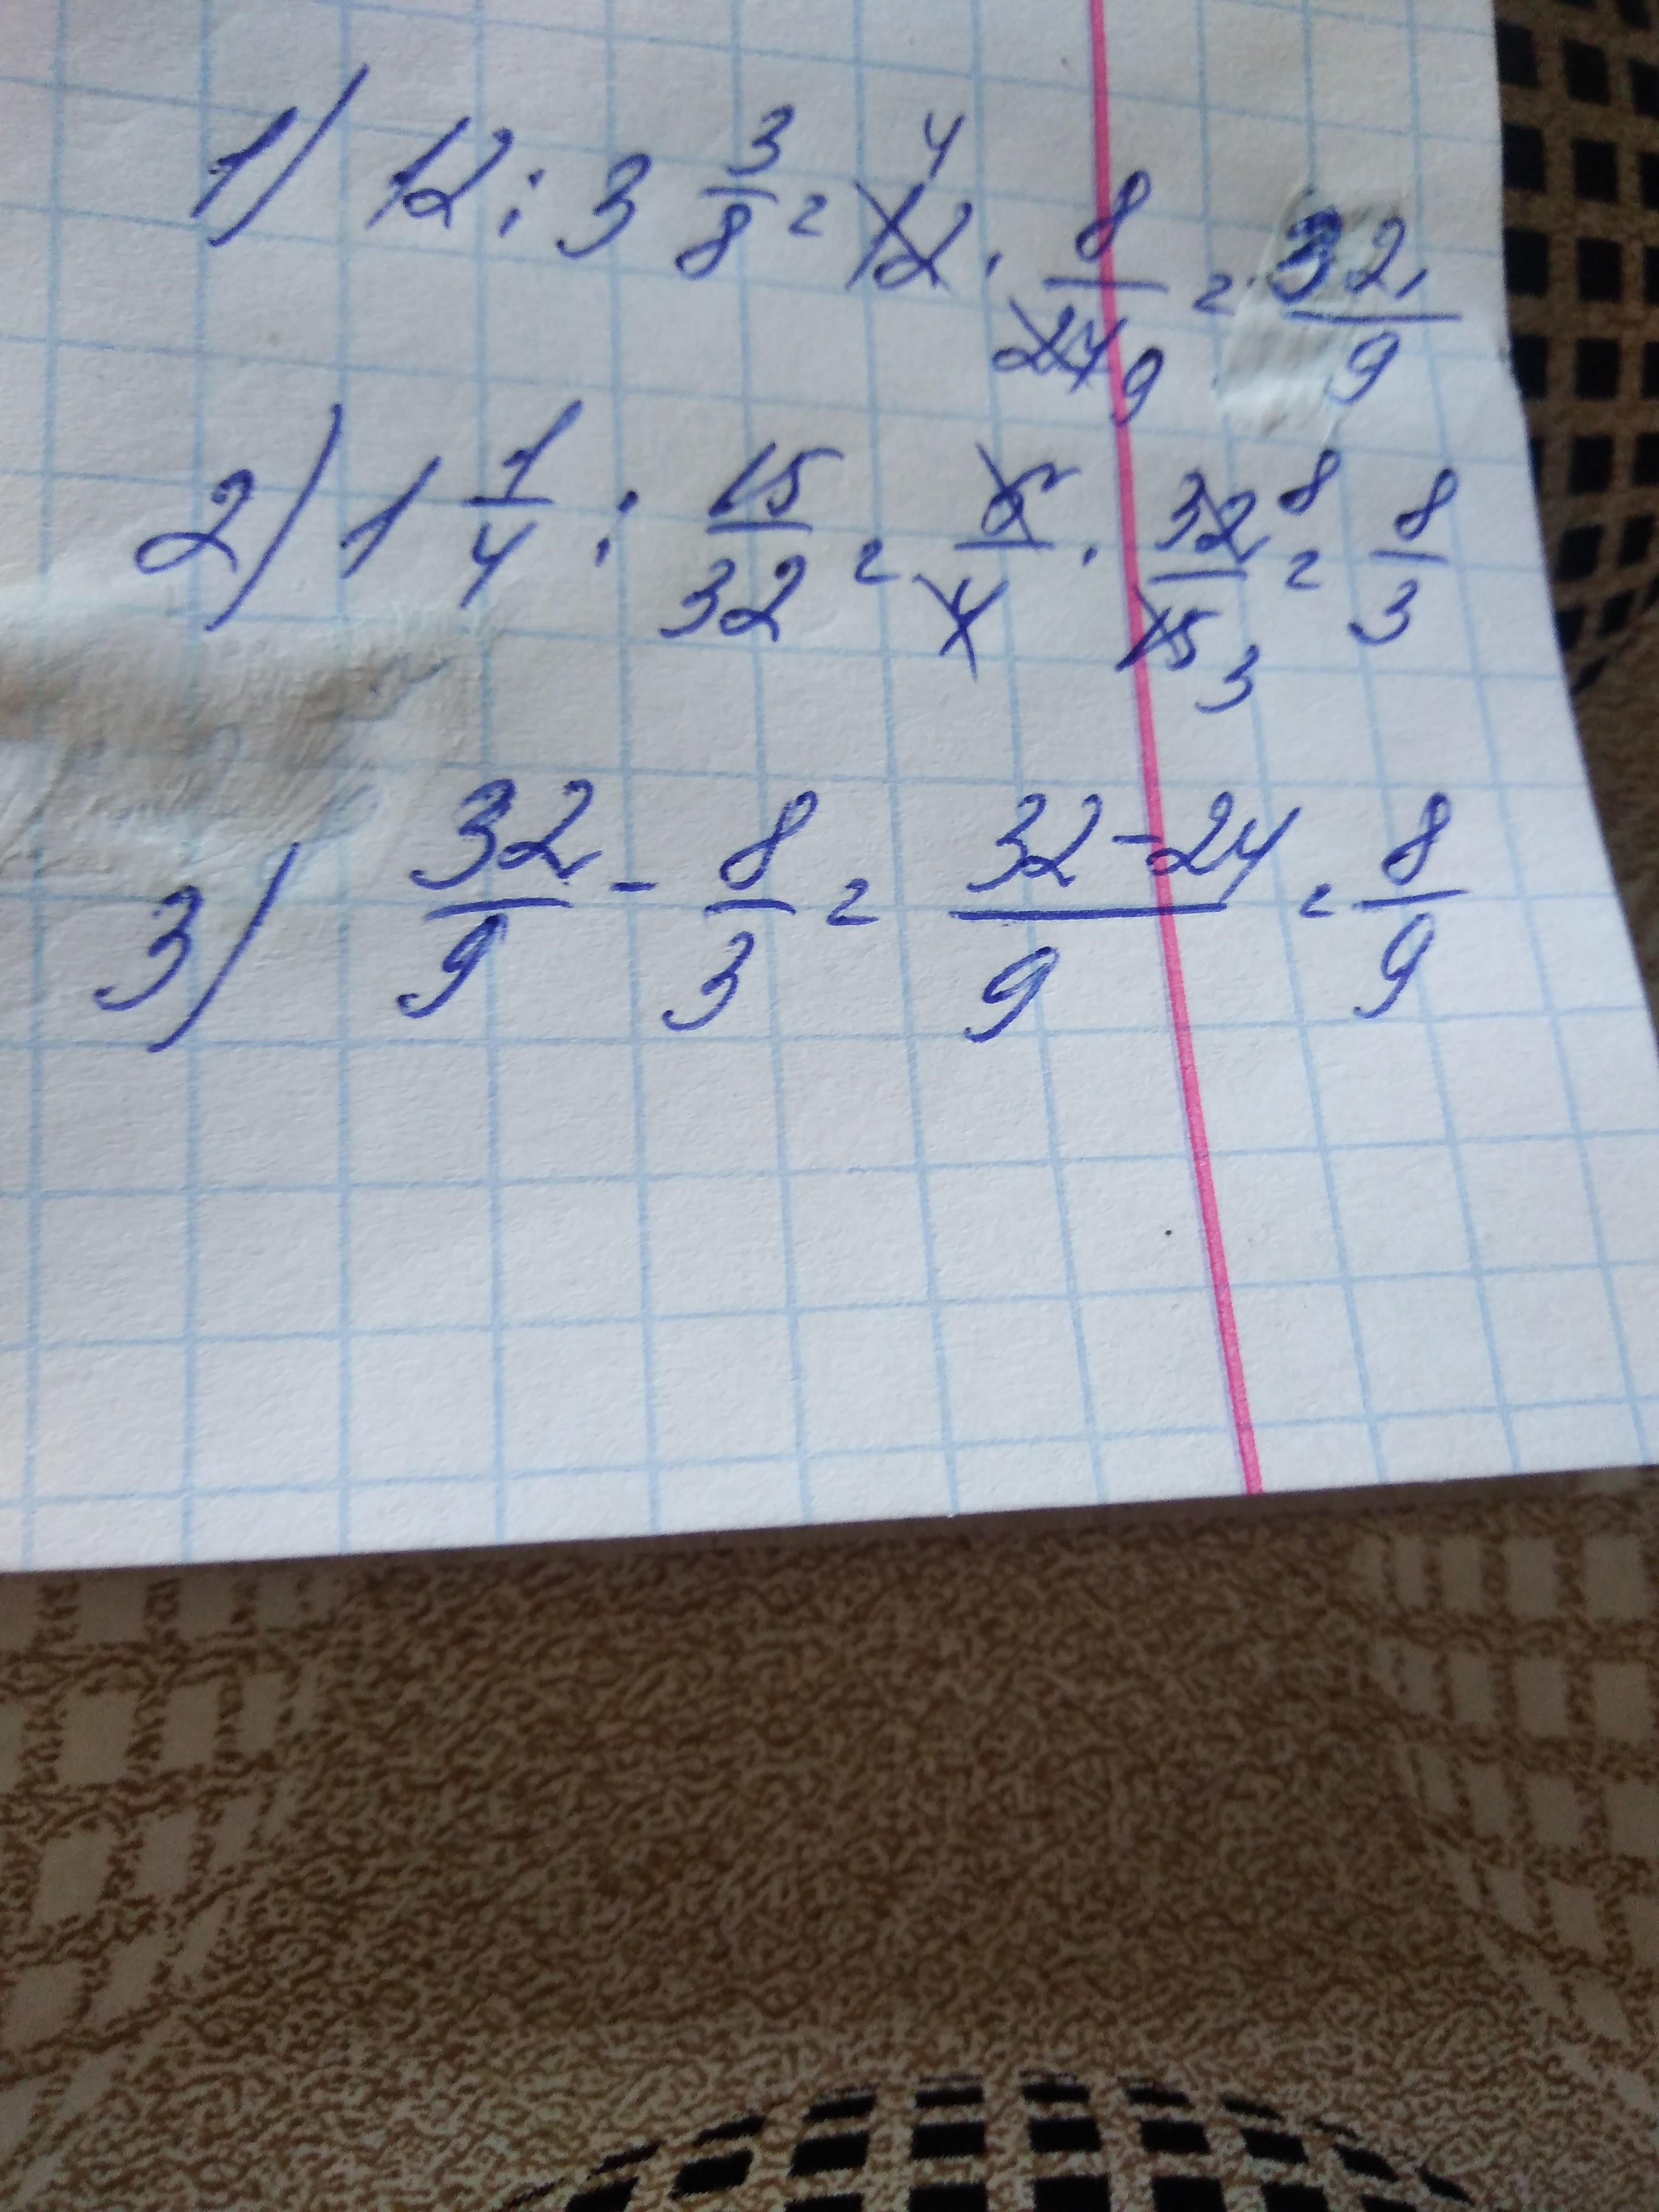 1) 12 : 3 3/8 = 12 4 · 8/27 9 = 32/9
2) 1 1/4 : 15/32 = 5/4 · 32 8/15 3 = 8/3
3) 32/9 - 8/3 = 32-24/9 = 8/9